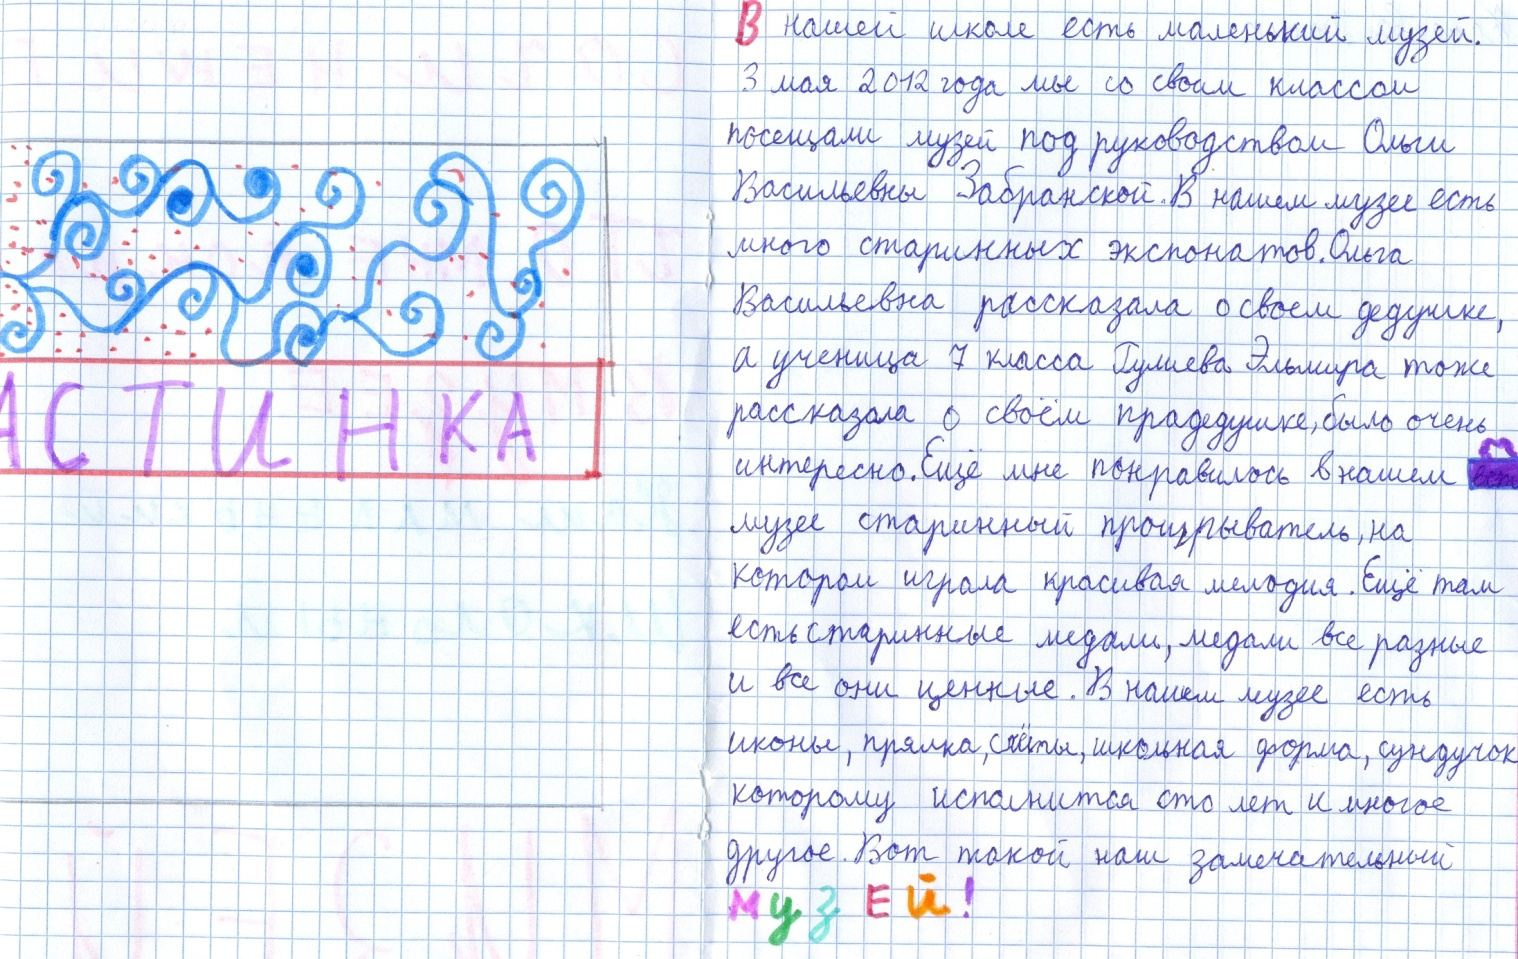 АСТИНКА
В нашей школе есть маленький музей.
3 мая 2012 года мы со своим классом
посещали музей под руководством Ольги
Васильевны Забранской. В нашем музее есть
много старинных экспонатов. Ольга
Васильевна рассказала о своем дедушке,
а ученица 7 класса Гулиева Эльмира тоже
рассказала о своём прадедушке, было очень
интересно. Ещё мне понравилось в нашем
музее старинный проигрыватель, на
котором играла красивая мелодия. Ещё там
есть старинные медали, медали все разные
и все они ценные. В нашем музее есть
иконы, прялка, счёты, школьная форма, сундучок
которому исполнится сто лет и многое
другое. Вот такой наш замечательный
музЕй!